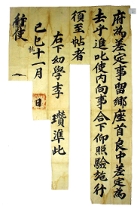 府爲差定事留鄉座首良中差定爲
去乎進叱使內向事合下仰照驗施行
須至帖者
右下幼學李 瓚準此
己巳十一月 日
帖